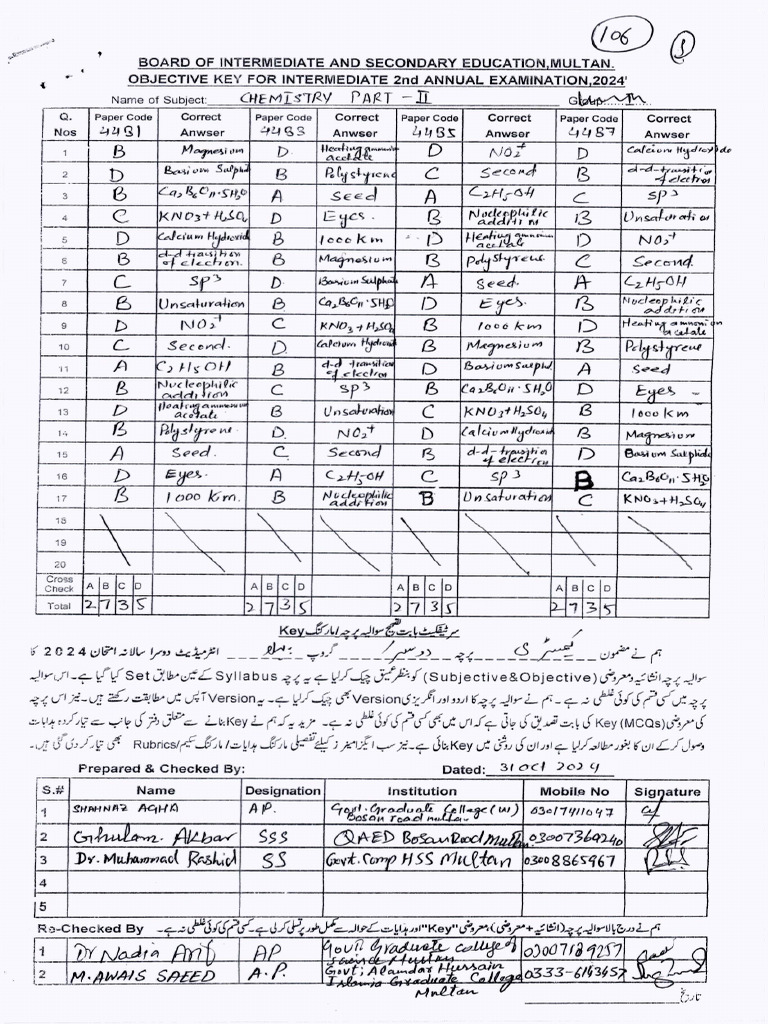 106
BOARD OF INTERMEDIATE AND SECONDARY EDUCATION,MULTAN.
OBJECTIVE KEY FOR INTERMEDIATE 2nd ANNUAL EXAMINATION,2024'
Name of Subject: CHEMISTRY PART - II
Q. Nos Paper Code 4481 Correct Anwser Paper Code 4483 Correct Anwser Paper Code 4485 Correct Anwser Paper Code 4487 Correct Anwser
1 B Magnesium D Heating ammonium acetate D NO2+ D Calcium Hydroxide
2 D Barium Sulphid B Polystyrene C Second B d-d-transition of electron
3 B Ca2B6O11·5H2O A Seed A C2H5OH C SP3
4 C KNO3+H2SO4 D Eyes. B Nucleophilic addition B Unsaturation
5 D Calcium Hydroxid B 1000 km D Heating ammonium acetate D NO2+
6 B d-d transition of election. B Magnesium B Polystyrene C Second.
7 C SP3 D Barium Sulphate A Seed. A C2H5OH
8 B Unsaturation B Ca2B6O11·5H2O D Eyes B Nucleophilic addition
9 D NO2+ C KNO3+H2SO4 B 1000 km D Heating ammonium acetate
10 C Second. D Calcium Hydroxid B Magnesium B Polystyrene
11 A C2H5OH B d-d transition of electron D Barium Sulphd A Seed
12 B Nucleophilic addition C SP3 B Ca2B6O11·5H2O D Eyes
13 D Heating ammonium acetate B Unsaturation C KNO3+H2SO4 B 1000 km
14 B Polystyrene. D. NO2+ D Calcium Hydroxid B Magnesium
15 A Seed. C Second B d-d-transition of electron D Barium Sulphide
16 D Eyes A C2H5OH C SP3 B Ca2B6O11·5H2O
17 B 1000 Km. B Nucleophilic addition B Unsaturation C KNO3+H2SO4
18
19
20
Cross Check A B C D A B C D A B C D A B C D
Total 2 7 3 5 2 7 3 5 2 7 3 5 2 7 3 5
سرٹیفکیٹ بابت تصحیح سوالیہ پرچہ/مارکنگ Key
ہم نے مضمون کیمسٹری پرچہ دوسرا گروپ انٹرمیڈیٹ دوسرا سالانہ امتحان 2024 کا
سوالیہ پرچہ انشائیہ ومعروضی (Subjective&Objective) کو بنظر عمیق چیک کرلیا ہے یہ پرچہ Syllabus کے عین مطابق Set کیا گیا ہے۔ اس سوالیہ
پرچہ میں کسی قسم کی کوئی غلطی نہ ہے۔ ہم نے سوالیہ پرچہ کا اردو اور انگریزی Version بھی چیک کرلیا ہے۔ یہ Version آپس میں مطابقت رکھتے ہیں۔ نیز اس پرچہ
کی معروضی (MCQs) Key کی بابت تصدیق کی جاتی ہے کہ اس میں بھی کسی قسم کی کوئی غلطی نہ ہے۔ مزید یہ کہ ہم نے Key بنانے سے متعلق دفتر کی جانب سے تیار کردہ ہدایات
وصول کر کے ان کا بغور مطالعہ کرلیا ہے اور ان کی روشنی میں Key بنائی ہے۔ نیز سب ایگزامینرز کیلئے تفصیلی مارکنگ ہدایات/مارکنگ سکیم/Rubrics بھی تیار کر دی گئی ہیں۔
Prepared & Checked By: Dated: 31 Oct 2024
S.# Name Designation Institution Mobile No Signature
1 SHAHNAZ AGHA AP. Govt. Graduate College (W) Bosan road multan. 03017411047
2 Ghulam Akbar SSS QAED Bosan Road Multan. 03007369240
3 Dr. Muhammad Rashid SS Govt. Comp HSS Multan 03008865967
4
5
Re-Checked By ہم نے درج بالا سوالیہ پرچہ (انشائیہ + معروضی)، معروضی "Key" اور ہدایات کے حوالہ سے مکمل طور پر تسلی کرلی ہے۔ کسی قسم کی کوئی غلطی نہ ہے۔
1 Dr Nadia Arif AP Govt. Graduate college of science Multan 03007189257
2 M. AWAIS SAEED A.P. Govt; Alamdar Hussain Islamia Graduate College Multan 0333-6143457